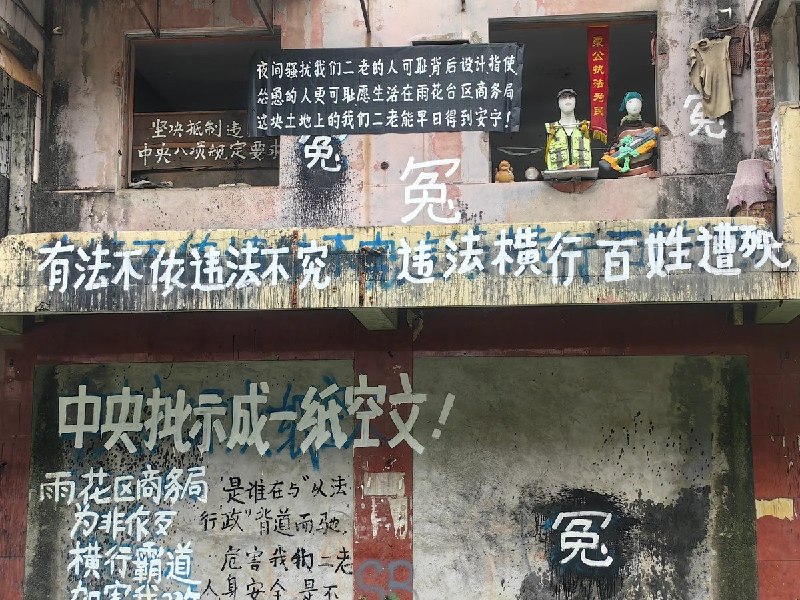 夜间骚扰我们二老的人可耻背后设计指使
怂恿的人更可耻愿生活在雨花台区商务局
这块土地上的我们二老能早日得到安宁!
秉公执法为民
坚决抵制违
中央八项规定要求
冤
冤
冤
有法不依违法不究 违法横行百姓遭殃
中央批示成一纸空文!
雨花区商务局
为非作歹
横行霸道
加害我
"是谁在与"从法
行政"背道而驰.
危害我们二老
人身安全是不
冤